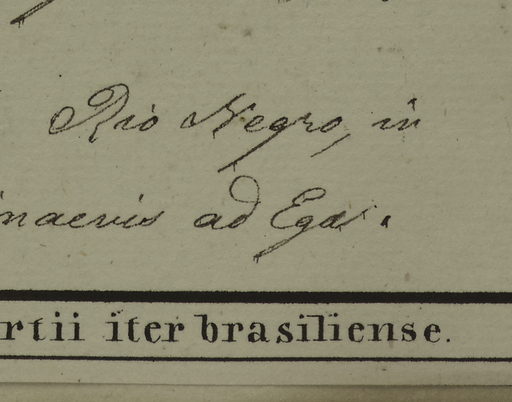 Rio Negro, in
inaevis ad Ega.
rtii iter brasiliense.